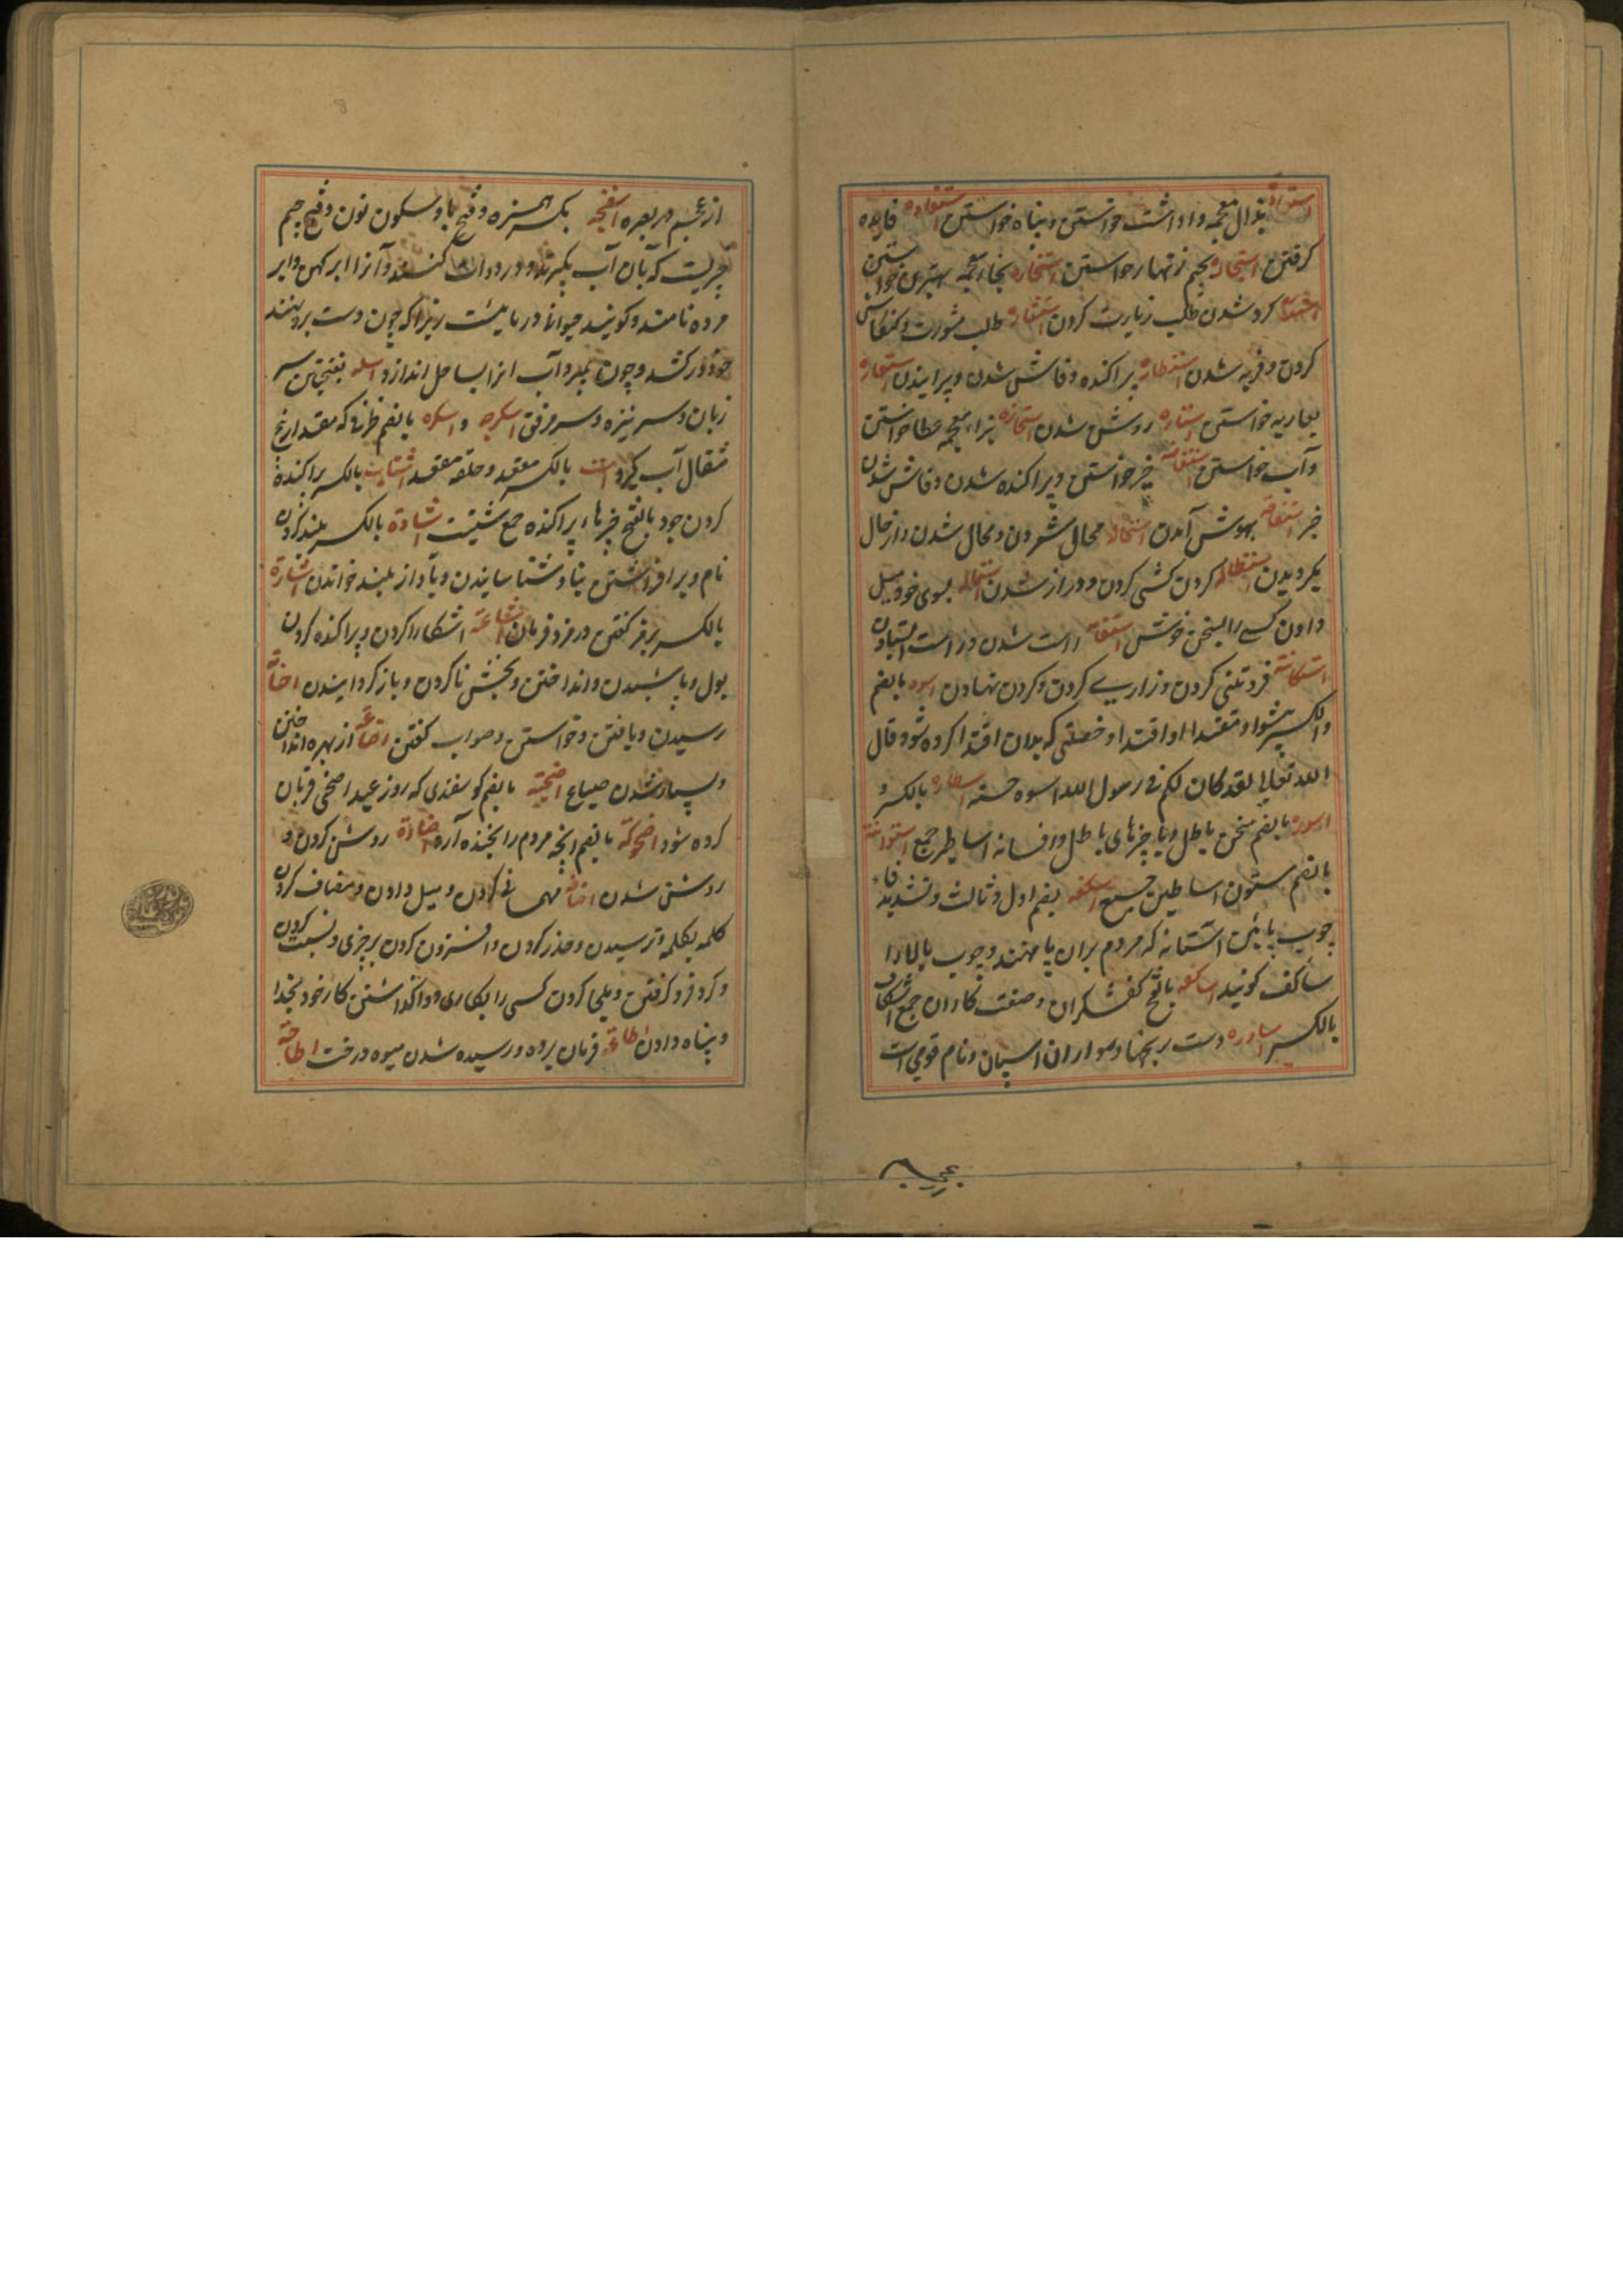 استعاذه بذال معجمه واداشت خواستن و پناه خواستن استفاده فایده
گرفتن استجاره بجیم زنهار خواستن استخاره بخاء معجمه بهترین خواستن
گرد شدن طلب زیارت کردن استشاره طلب مشورت و کنکاش
کردن و فربه شدن استطاره پراکنده و فاش شدن و پرانیدن استعاره
بعاریه خواستن استناره روشن شدن استجازه بزاء معجمه عطا خواستن
و آب خواستن استفاضه خبر خواستن و پراکنده شدن و فاش شدن
خبر استفاقه بهوش آمدن استحاله محال شمردن و محال شدن و از حال
بگردیدن استطاله گردن کشی کردن و دراز شدن استماله بسوی خود میل
دادن کسی را بسخن خوش استقامه راست شدن و راست ایستادن
استکانه فروتنی کردن و زاری کردن و گردن نهادن اسوه بالضم
والکسر پیشوا و مقتدا و اقتدا و خصلتی که بدان اقتدا کرده شود قال
الله تعالی لقد کان لکم فی رسول الله اسوه حسنه اسطاره بالکسر و
اسطوره بالضم سخن باطل و یا چیزهای باطل و افسانه اساطیر جمع اسطوانة
بالضم ستون اساطین جمع اسکفه بضم اول و ثالث و تشدید فاء
چوب پائین آستانه که مردم بران پا نهند و چوب بالا را
ساکف گویند اساکفه بالفتح کفشگران و صنعت کاران جمع اسکاف
بالکسر اساوره دست برنجها و سواران اسپان و نام قومی است
از عجم در بصره اسفنجه بکسر همزه و فتح با و سکون نون و فتح جیم
چیزیست که بان آب برگیرند و در دوات کنند و آنرا ابر کهن و ابر
مرده نامند و گویند حیوانی دریائیست زیرا که چون دست برو نهند
خود درکشد و چون بمیرد آب انرا بساحل اندازد اسله بفتحتین سر
زبان و سر نیزه و سر مرفق اسکرجه و اسکره بالضم ظرفی که مقدار پنج
مثقال آب گیرد است بالکسر مقعد و حلقه مقعد اشتات بالکسر پراکنده
کردن خود بالفتح چیزهاء پراکنده جمع شتیت اشادة بالکسر بلند کردن
نام و برافراشتن بنا و شناسانیدن و بآواز بلند خواندن اشارة
بالکسر برمز گفتن و رمز و فرمان اشاعة اشکارا کردن و پراکنده کردن
بول و پاشیدن و انداختن و بخشش نا کردن و باز گردانیدن
رسیدن و یافتن و خواستن و صواب گفتن اضاعة از بهره انداختن
و بسیار شدن ضیاع اضحیة بالضم گوسفندی که روز عید اضحی قربان
کرده شود اضحوکة بالضم آنچه مردم را بخنده آرد اضاءة روشن کردن و
روشن شدن اضافة مهمانی کردن و میل دادن و مضاف کردن
کلمه بکلمه و ترسیدن و حذر کردن و افزون کردن بر چیزی و نسبت کردن
و گرد فرو گرفتن و ملجا کردن کسی را بکاری و واگذاشتن کار خود بخدا
و پناه دادن اطاعة فرمان بردن و رسیده شدن میوه درخت اطاحة